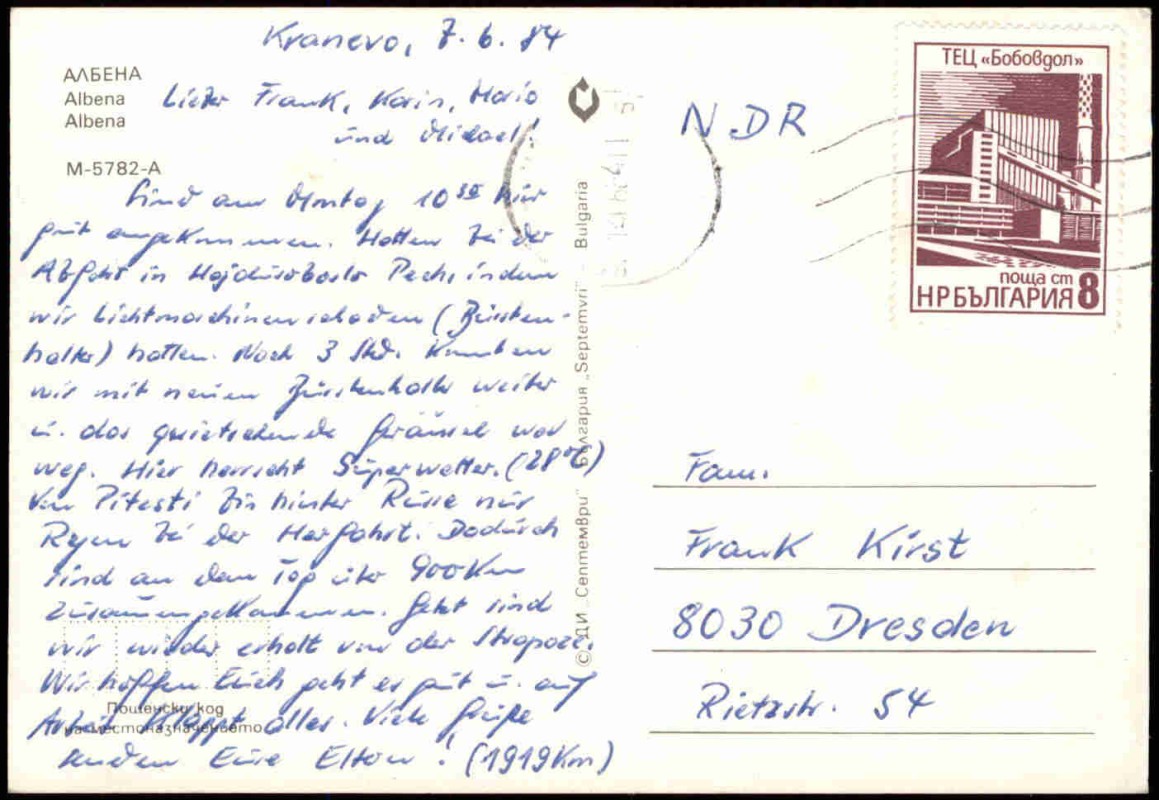 Kranevo, 7.6.84
АЛБЕНА
Albena
Albena
M-5782-A
Lieber Frank, Karin, Mario
und Michael!
Sind am Montag 10 30 hier
gut angekommen. Hatten bei der
Abfahrt in Hajduszoboslo Pech, indem
wir Lichtmaschinenschaden (Bürsten-
halter) hatten. Nach 3 Std. konnten
wir mit neuen Bürstenhalter weiter
u. das quietschende Geräusch war
weg. Hier herrscht Superwetter. (28°C)
Von Pitesti bis hinter Russe nur
Regen bei der Herfahrt. Dadurch
sind an dem Tag über 900 Km
zusammengekommen. Jetzt sind
wir wieder erholt von der Strapaze.
Wir hoffen Euch geht es gut u. auf
Arbeit klappt alles. Viele Grüße
senden Eure Eltern! (1919 Km)
Пощенски код
на местоназначението
© ДИ „Септември" България „Septemvri" - Bulgaria
NDR
ТЕЦ «Бобовдол»
поща ст
НРБЪЛГАРИЯ 8
Fam.
Frank Kirst
8030 Dresden
Rietzstr. 54